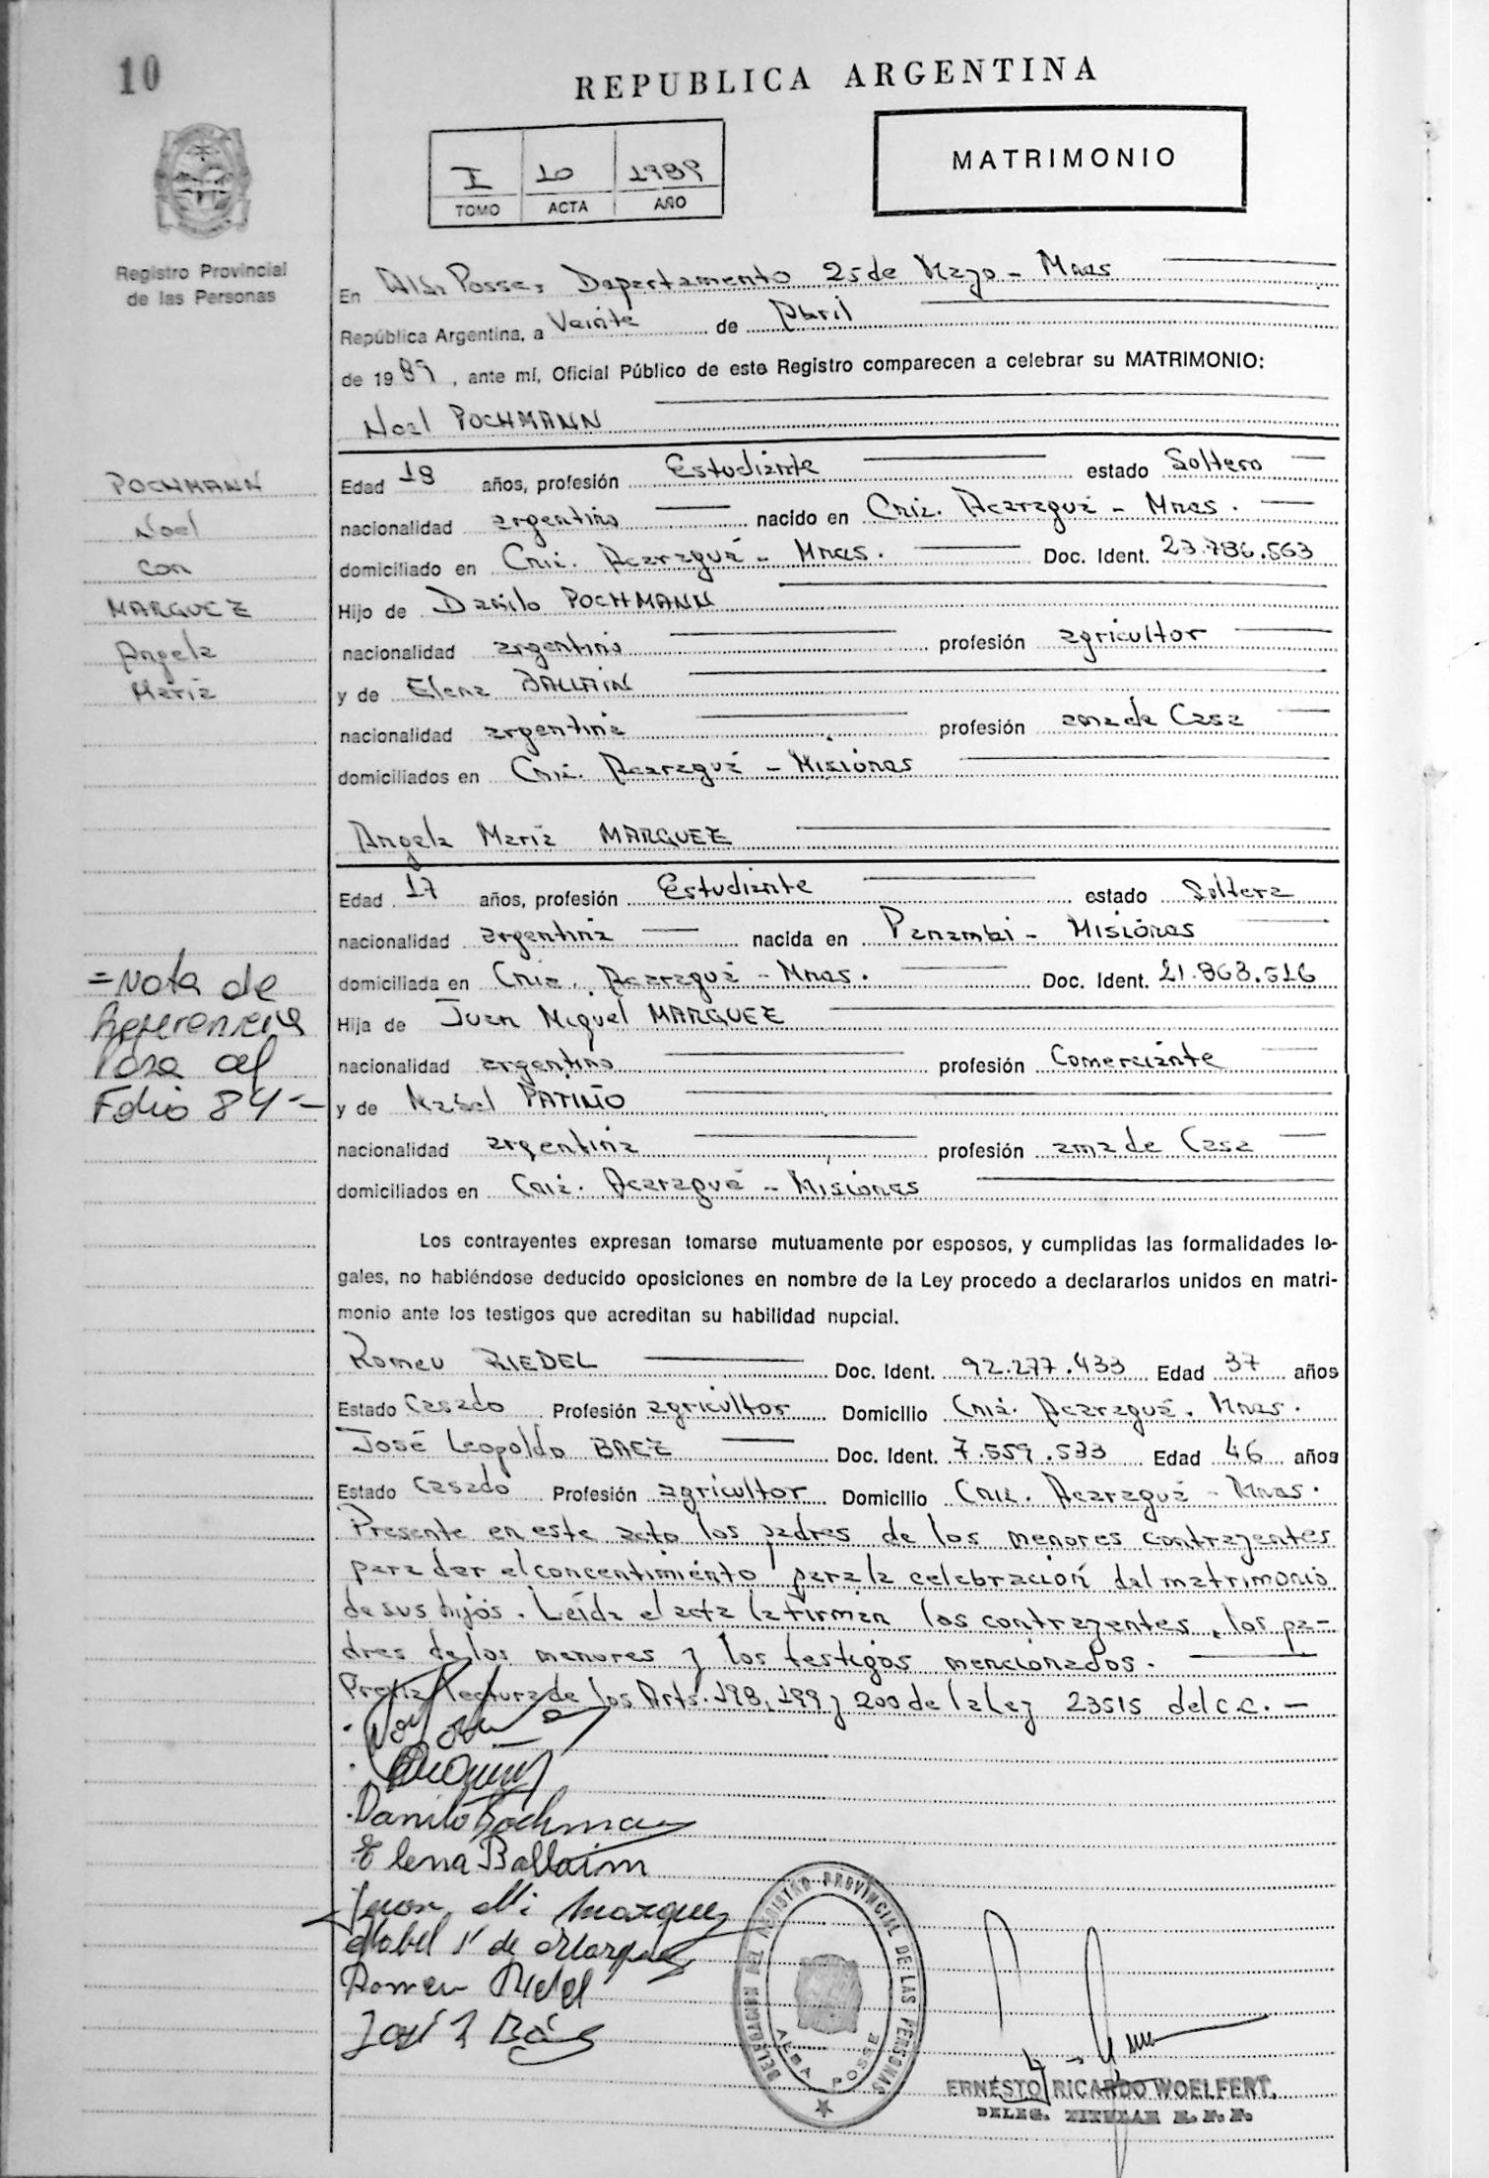 10
REPUBLICA ARGENTINA
I 10 1989
TOMO ACTA AÑO
MATRIMONIO
Registro Provincial
de las Personas
En Alba Posse, Departamento 25 de Mayo - Mnes
República Argentina, a Veinte de Abril
de 1989, ante mí, Oficial Público de este Registro comparecen a celebrar su MATRIMONIO:
Noel POCHMANN
POCHMANN
Noel
con
MARQUEZ
Angela
María
Edad 18 años, profesión Estudiante estado Soltero
nacionalidad argentino nacido en Cnia. Acaraguá - Mnes.
domiciliado en Cnia. Acaraguá - Mnes. Doc. Ident. 23.786.563
Hijo de Danilo POCHMANN
nacionalidad argentino profesión agricultor
y de Elena BALLAIN
nacionalidad argentina profesión ama de Casa
domiciliados en Cnia. Acaraguá - Misiones
Angela María MARQUEZ
Edad 17 años, profesión Estudiante estado Soltera
nacionalidad argentina nacida en Panambi - Misiones
domiciliada en Cnia. Acaraguá - Mnes. Doc. Ident. 21.863.516
Hija de Juan Miguel MARQUEZ
nacionalidad argentino profesión Comerciante
y de Mabel PATIÑO
nacionalidad argentina profesión ama de Casa
domiciliados en Cnia. Acaraguá - Misiones
= Nota de
Referencia
Pasa al
Folio 84 -
Los contrayentes expresan tomarse mutuamente por esposos, y cumplidas las formalidades le-
gales, no habiéndose deducido oposiciones en nombre de la Ley procedo a declararlos unidos en matri-
monio ante los testigos que acreditan su habilidad nupcial.
Romeu RIEDEL Doc. Ident. 92.277.433 Edad 37 años
Estado Casado Profesión agricultor Domicilio Cnia. Acaraguá. Mnes.
José Leopoldo BAEZ Doc. Ident. 7.559.533 Edad 46 años
Estado Casado Profesión agricultor Domicilio Cnia. Acaraguá - Mnes.
Presente en este acto los padres de los menores contrayentes
para dar el concentimiento para la celebración del matrimonio
de sus hijos. Leída el acta la firman los contrayentes, los pa-
dres de los menores y los testigos mencionados.
Previa lectura de los Arts. 198, 199 y 200 de la Ley 23515 del C.C. -
Danilo Pochman
Elena Ballaim
Juan Mi Marquez
Mabel P de Marquez
Romeu Ridel
José L Báez
DELEGACION DEL REGISTRO PROVINCIAL DE LAS PERSONAS
ALBA POSSE
ERNESTO RICARDO WOELFERT.
DELEG. TITULAR R. P. P.